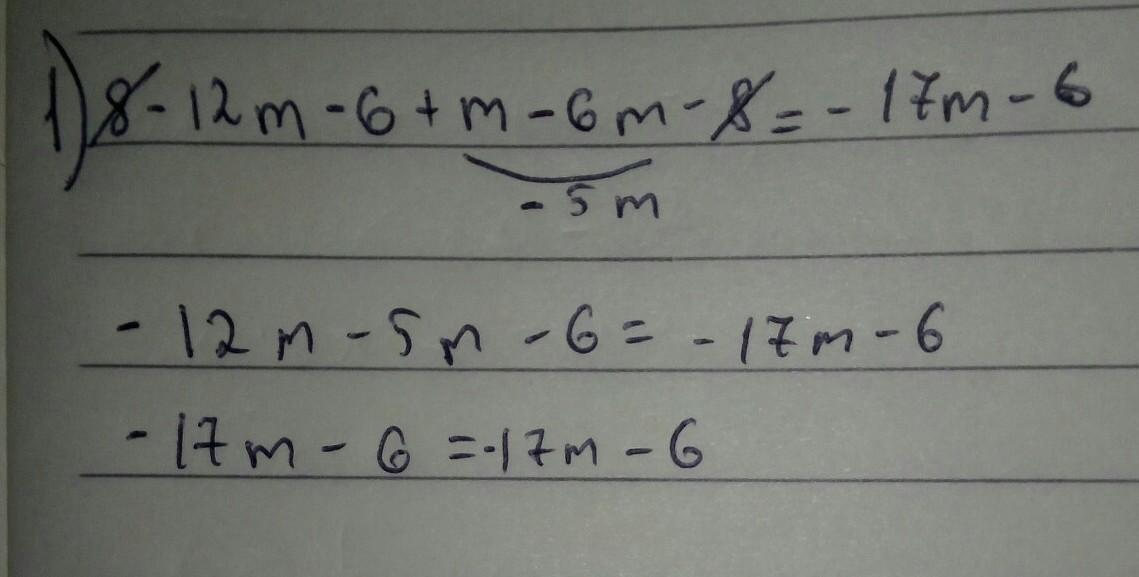 1) 8 - 12m - 6 + m - 6m - 8 = - 17m - 6
- 5m
- 12m - 5m - 6 = - 17m - 6
- 17m - 6 = -17m - 6